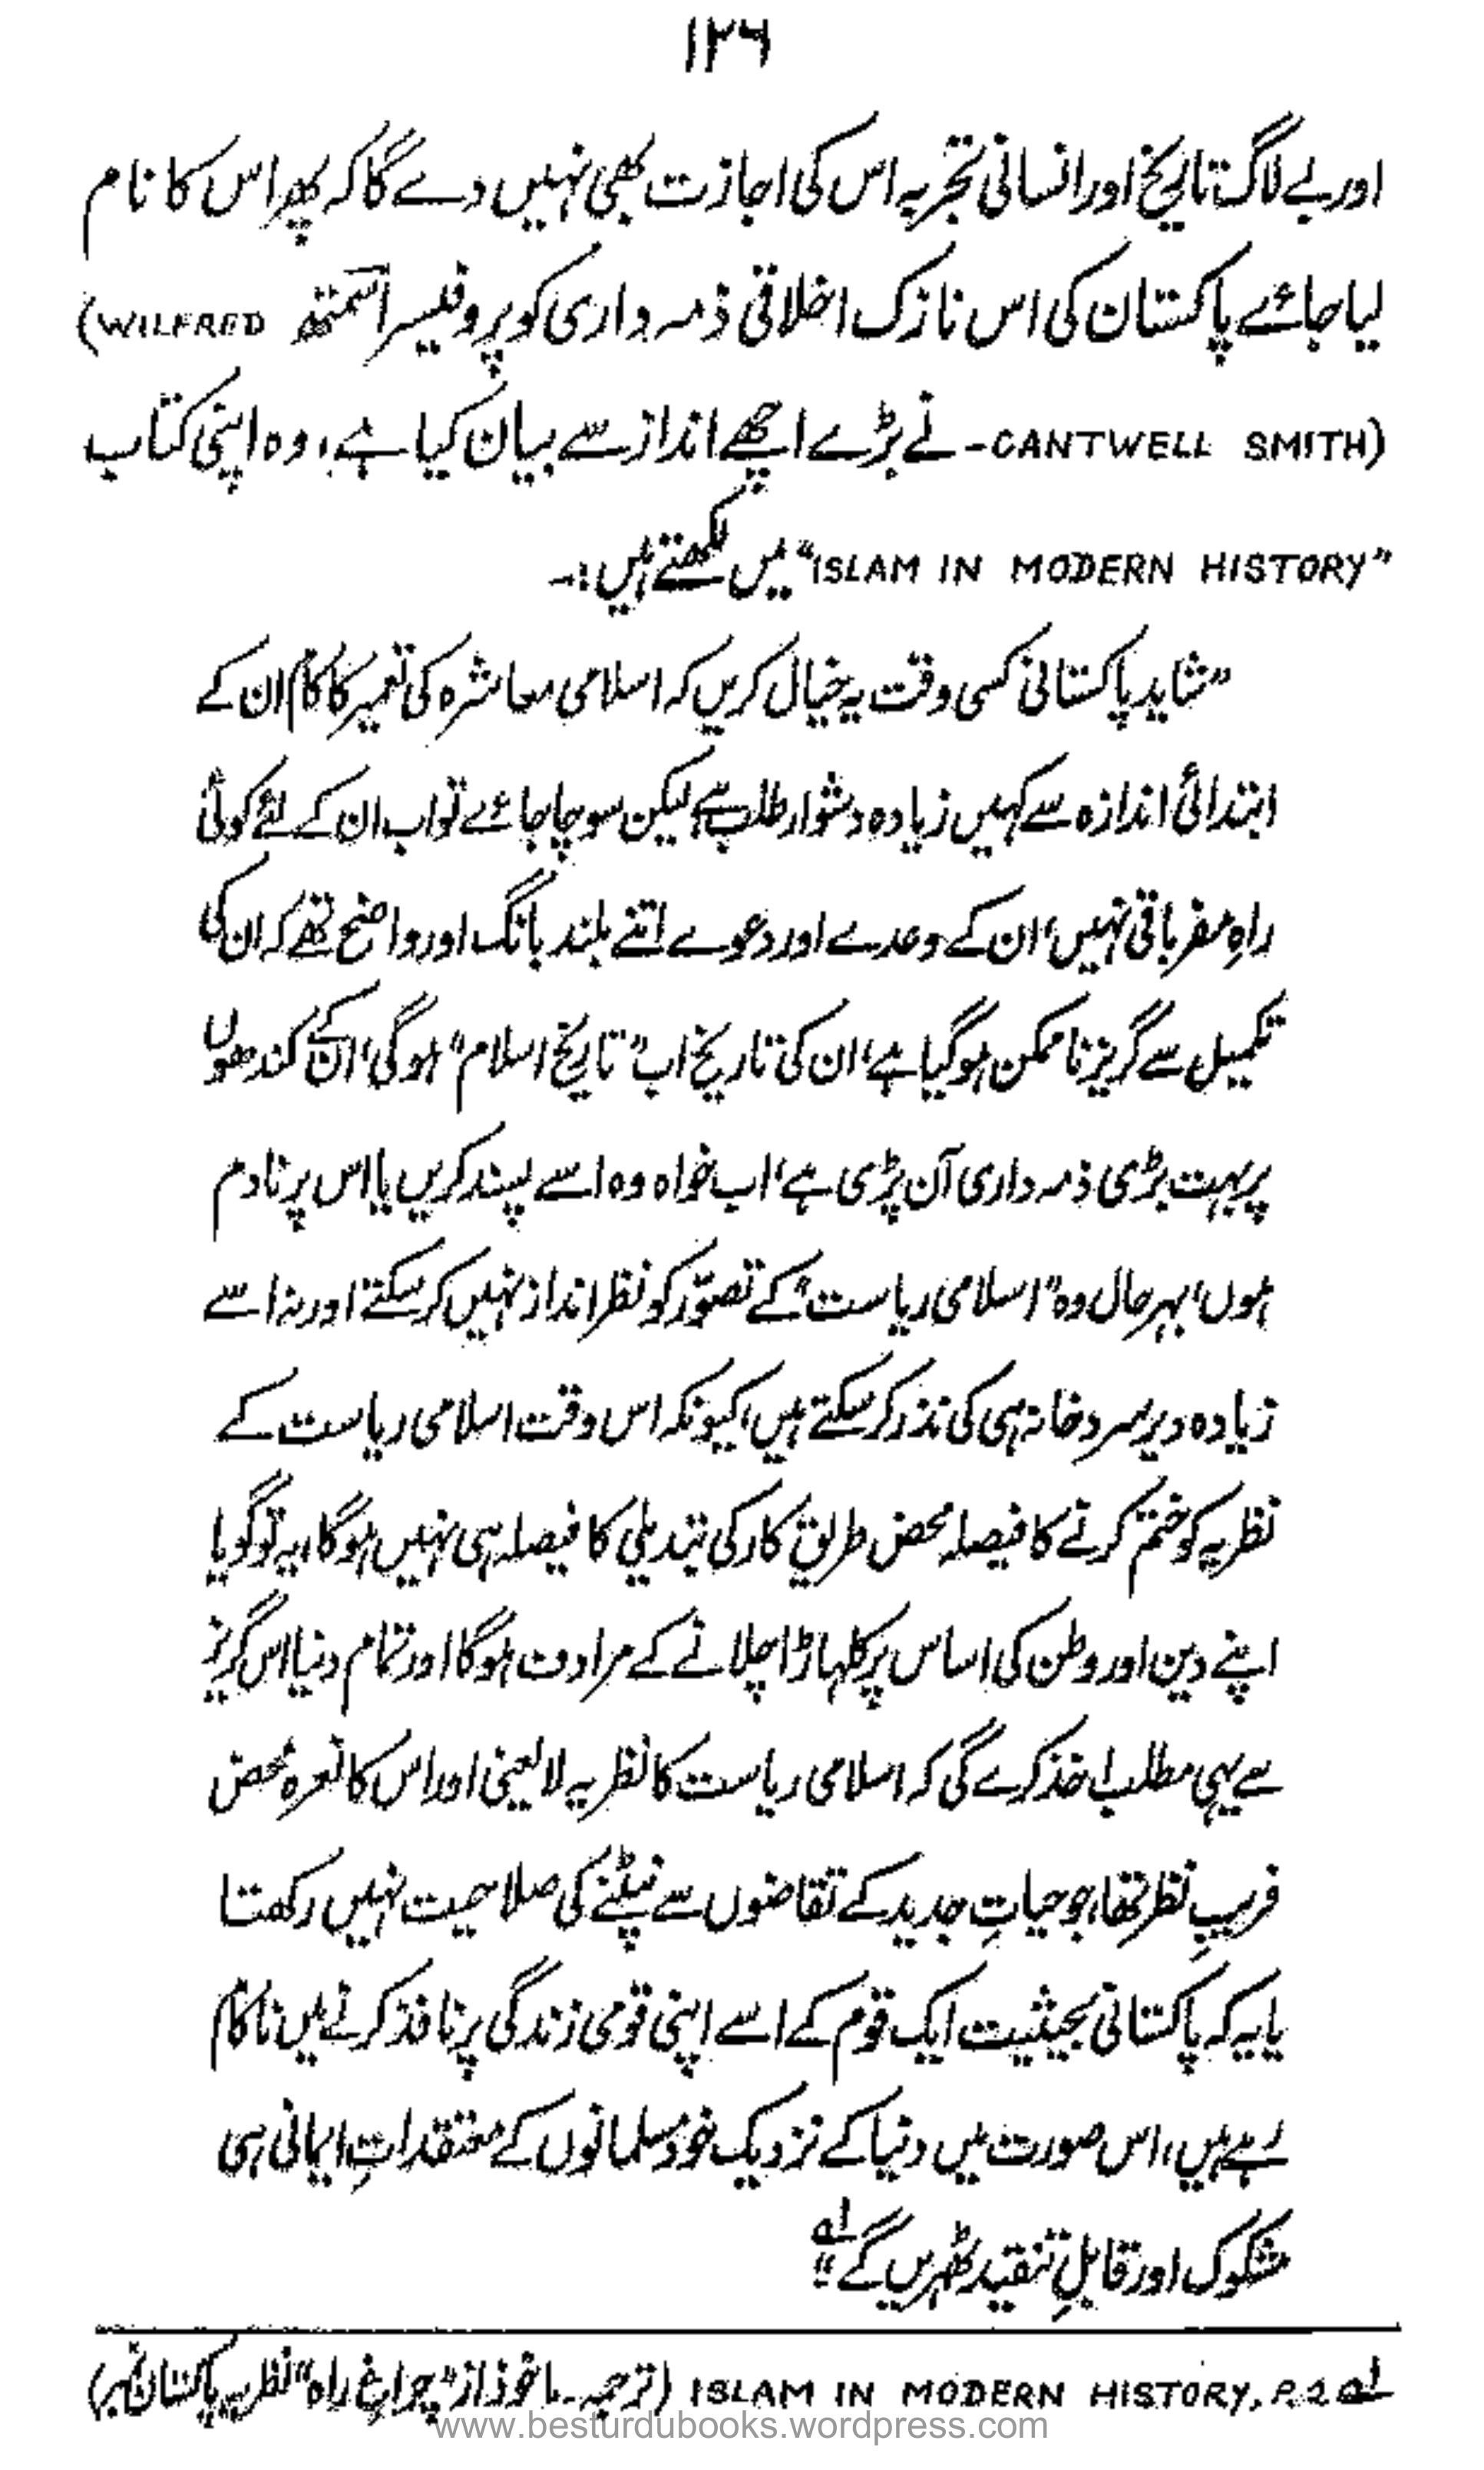 ۱۲۶
اور بے لاگ تاریخ اور انسانی تجربہ اس کی اجازت بھی نہیں دے گا کہ پھر اس کا نام
لیا جائے پاکستان کی اس نازک اخلاقی ذمہ داری کو پروفیسر اسمتھ (WILFRED
CANTWELL SMITH)- نے بڑے اچھے انداز سے بیان کیا ہے، وہ اپنی کتاب
"ISLAM IN MODERN HISTORY" میں لکھتے ہیں :-
"شاید پاکستانی کسی وقت یہ خیال کریں کہ اسلامی معاشرہ کی تعمیر کا کام ان کے
ابتدائی اندازہ سے کہیں زیادہ دشوار طلب ہے، لیکن سوچا جائے تو اب ان کے لئے کوئی
راہِ مفر باقی نہیں، ان کے وعدے اور دعوے اتنے بلند بانگ اور واضح تھے کہ ان کی
تکمیل سے گریز ناممکن ہو گیا ہے، ان کی تاریخ اب "تاریخ اسلام" ہو گی، ان کے کندھوں
پر بہت بڑی ذمہ داری آن پڑی ہے، اب خواہ وہ اسے پسند کریں یا اس پر نادم
ہوں، بہر حال وہ "اسلامی ریاست" کے تصوّر کو نظر انداز نہیں کر سکتے، اور نہ اسے
زیادہ دیر سرد خانہ ہی کی نذر کر سکتے ہیں، کیونکہ اس وقت اسلامی ریاست کے
نظریہ کو ختم کرنے کا فیصلہ محض طریق کار کی تبدیلی کا فیصلہ ہی نہیں ہو گا، یہ تو گویا
اپنے دین اور وطن کی اساس پر کلہاڑا چلانے کے مرادف ہو گا اور تمام دنیا اس گریز
سے یہی مطلب اخذ کرے گی کہ اسلامی ریاست کا نظریہ لا یعنی اور اس کا نعرہ محض
فریبِ نظر تھا، جو حیاتِ جدید کے تقاضوں سے نپٹنے کی صلاحیت نہیں رکھتا
یا یہ کہ پاکستانی بحیثیت ایک قوم کے اسے اپنی قومی زندگی پر نافذ کرنے میں ناکام
رہے ہیں، اس صورت میں دنیا کے نزدیک خود مسلمانوں کے معتقداتِ ایمانی ہی
مشکوک اور قابلِ تنقید ٹھہریں گے" لہ
لہ ISLAM IN MODERN HISTORY, P.2 (ترجمہ ۔ ماخوذ از "چراغِ راہ" نظریہ پاکستان نمبر)
www.besturdubooks.wordpress.com